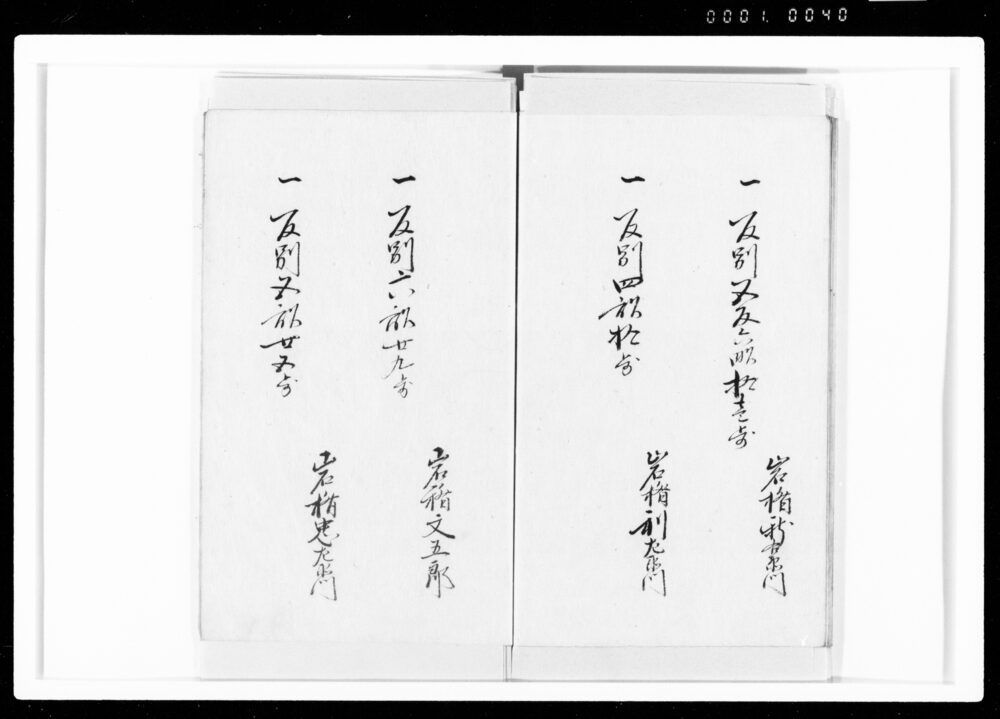 0001. 0040
一 反別五反六畝拾壱歩
岩楯新右衛門
一 反別四畝拾歩
岩楯利左衛門
一 反別六畝廿九歩
岩楯文五郎
一 反別五畝廿五歩
岩楯忠左衛門